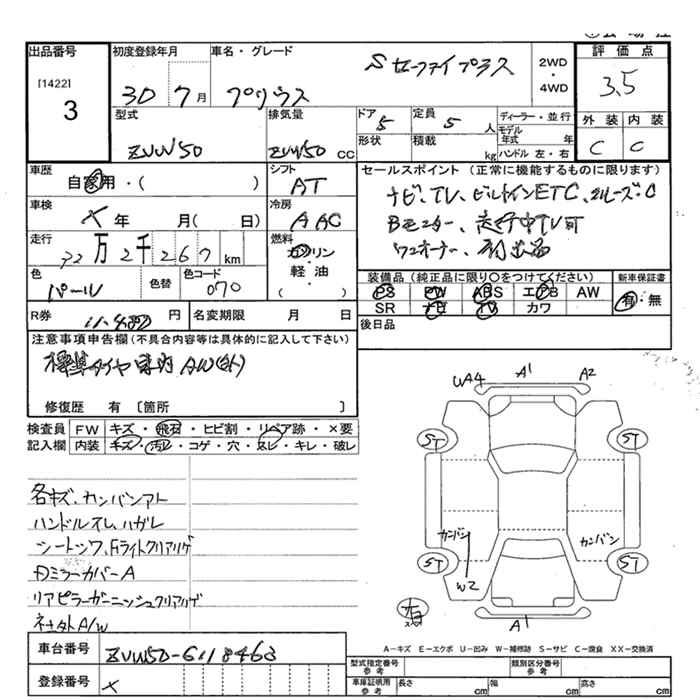 出品番号 初度登録年月 車名・グレード 評価点
[1422]
3
30 7月 プリウス Sセーフティプラス 2WD・4WD 3.5
型式 排気量 ドア 5 定員 5人 ディーラー・並行 外装 内装
モデル年式 年
ZVW50 ZVW50 CC 形状 積載 kg ハンドル 左・右 C C
車歴 シフト セールスポイント (正常に機能するものに限ります)
自家用・( ) AT ナビ、TV、ビルトインETC、クルーズC
車検 冷房
X年 月( 日) AAC Bモニター、走行中TV可
走行 燃料 ワンオーナー、
万2千267km ガソリン・軽・油・( )
色 色替 色コード 装備品 (純正品に限り○をつけてください) 新車保証書
パール 070 PS PW ABS エアB AW 有・無
SR ナビ TV カワ
R券 円 名変期限 月 日 後日品
注意事項申告欄 (不具合内容等は具体的に記入して下さい)
標準タイヤ AW
修復歴 有 [箇所 ]
UA4 A1 A2
検査員記入欄 FW キズ・飛石・ヒビ割・リペア跡・×要
内装 キズ・汚レ・コゲ・穴・スレ・キレ・破レ
ST ST
各キズ、カンバンアト
ハンドルスレ、ハガレ
シートシワ、Fライトクリアハゲ
カンバン カンバン
ミラーカバーA
ST ST
W2
リアピラーガーニッシュクリアハゲ
社外A/W
A1
A-キズ E-エクボ U-凹み W-補修跡 S-サビ C-腐食 XX-交換済
車台番号 ZVW50-6118463
型式指定番号 参考 類別区分番号 参考
登録番号 X
車庫証明用 参考 長さ cm 幅 cm 高さ cm